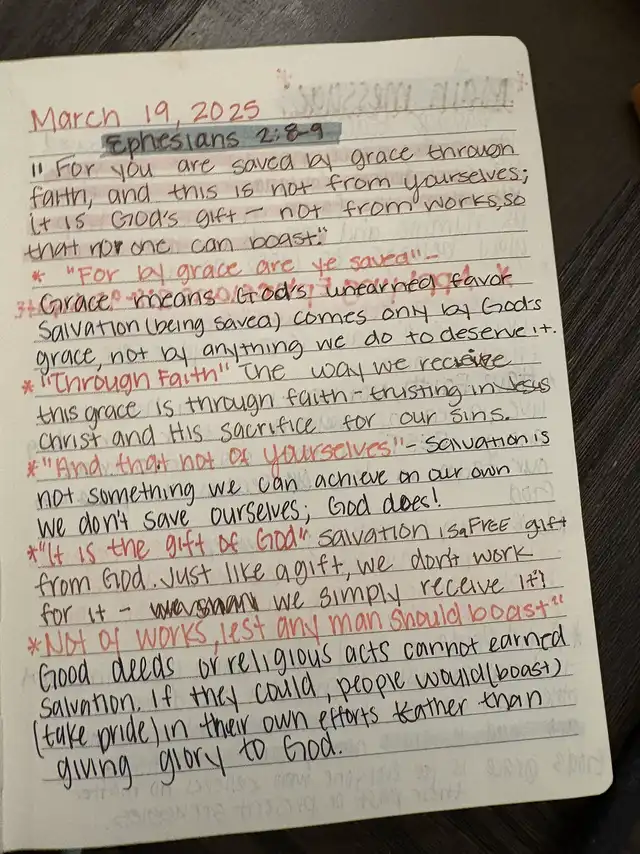 March 19, 2025
Ephesians 2:8-9
"For you are saved by grace through
faith, and this is not from yourselves;
it is God's gift - not from works, so
that no one can boast."
* "For by grace are ye saved" -
Grace means God's unearned favor
Salvation (being saved) comes only by God's
grace, not by anything we do to deserve it.
* "Through Faith" The way we receive
this grace is through faith - trusting in Jesus
Christ and His sacrifice for our sins.
* "And that not of yourselves" - Salvation is
not something we can achieve on our own
we don't save ourselves; God does!
* "It is the gift of God" salvation is a FREE gift
from God. Just like a gift, we don't work
for it - we simply receive it!
* Not of works, lest any man should boast"
Good deeds or religious acts cannot earned
salvation. If they could, people would (boast)
(take pride) in their own efforts rather than
giving glory to God.